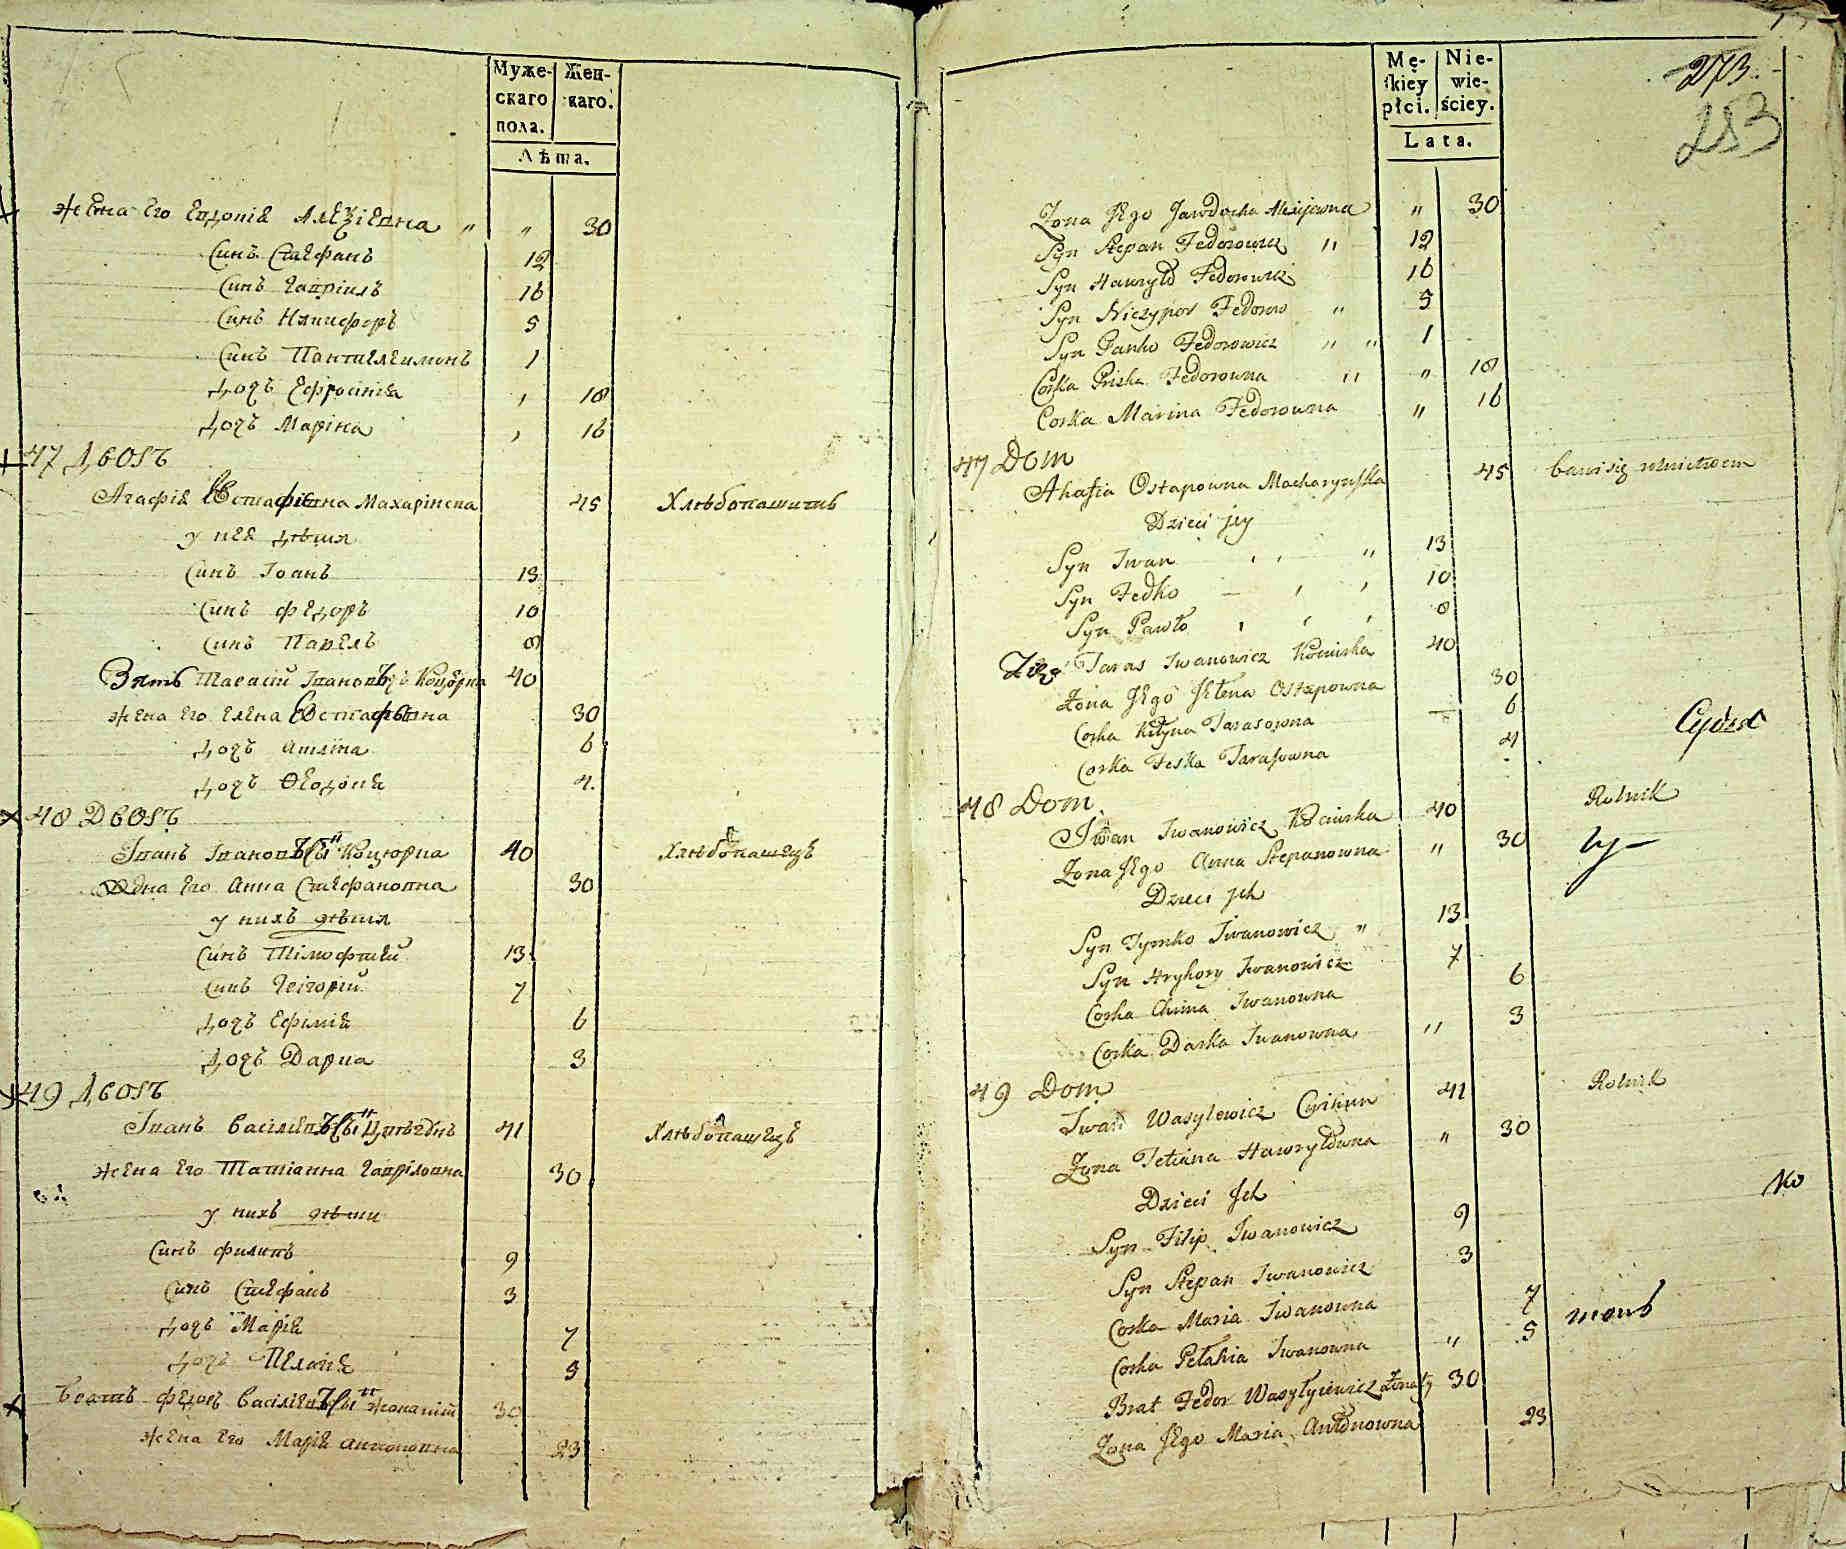 Муже-
скаго
пола.
Жен-
каго.
Лѣта.
Жена Его Евдокія Алеѯіевна " " 30
Синъ Стефанъ 12
Синъ Гавріилъ 16
Синъ Никифоръ 5
Синъ Пантелеимонъ 1
Дочь Ефросинія , 18
Дочь Маріна , 16
47 Дворъ
Агафія Евстафіевна Махарінска 45 Хлѣбопашитъ
у нея дѣтя
Синъ Іоанъ 13
Синъ Федоръ 10
Синъ Павелъ 8
Зять Тарасій Івановъ Коцюрка 40
Жена Его Елена Евстафіевна 30
Дочь 6
Дочь Ѳеодосія 4.
48 Дворъ
Іванъ Івановъ Коцюрка 40 Хлѣбопашецъ
Жена Его Анна Стефановна 30
у нихъ дѣтя
Синъ Тімофтей 13
Синъ Грігорій 7
Дочь Ефимія 6
Дочь Дарка 3
49 Дворъ
Іванъ Васілієвъ 41 Хлѣбопашецъ
Жена Его Татіанна Гавріловна 30
у нихъ дѣти
Синъ Филипъ 9
Синъ Стефанъ 3
Дочь Марія 7
Дочь 5
Братъ Федоръ Васілієвъ жонатій 30
Жена Его Марія Антоновна 23
Mę-
skiey
płci.
Nie-
wie-
ściey.
Lata.
273.
253
Żona Jego Jawdocha Alexijewna " 30
Syn Stepan Fedorowicz " 12
Syn Hawryło Fedorowicz 16
Syn Niczypor Fedorow " 5
Syn Panko Fedorowicz " " 1
Corka Priska Fedorowna " " 18
Corka Marina Fedorowna " 16
47 Dom
Ahafia Ostapowna Macharynska 45 bawi się rolnictwem
Dzieci jey
Syn Iwan " 13
Syn Fedko 10
Syn Pawło 8
Zięć Taras Iwanowicz Kociurka 40
Żona Jego Jełena Ostapowna 30
Corka Kiłyna Tarasowna 6
Corka Feska Tarasowna 4
48 Dom
Iwan Iwanowicz Kociurka 40 Rolnik
Żona Jego Anna Stepanowna " 30
Dzieci Jch
Syn Tymko Iwanowicz " 13
Syn Hryhory Iwanowicz 7
Corka Chima Iwanowna 6
Corka Darka Iwanowna " 3
49 Dom
Iwan Wasylewicz 41 Rolnik
Żona Tetiana Hawryłowna " 30
Dzieci Jch
Syn Filip Iwanowicz 9
Syn Stepan Iwanowicz 3
Corka Maria Iwanowna 7
Corka Pełahia Iwanowna " 5
Brat Fedor Wasylyiewicz żonaty 30
Żona Jego Maria Antonowna 23